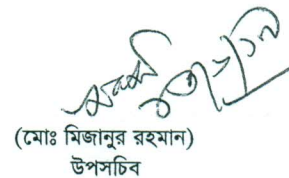 (মোঃ মিজানুর রহমান)
উপসচিব